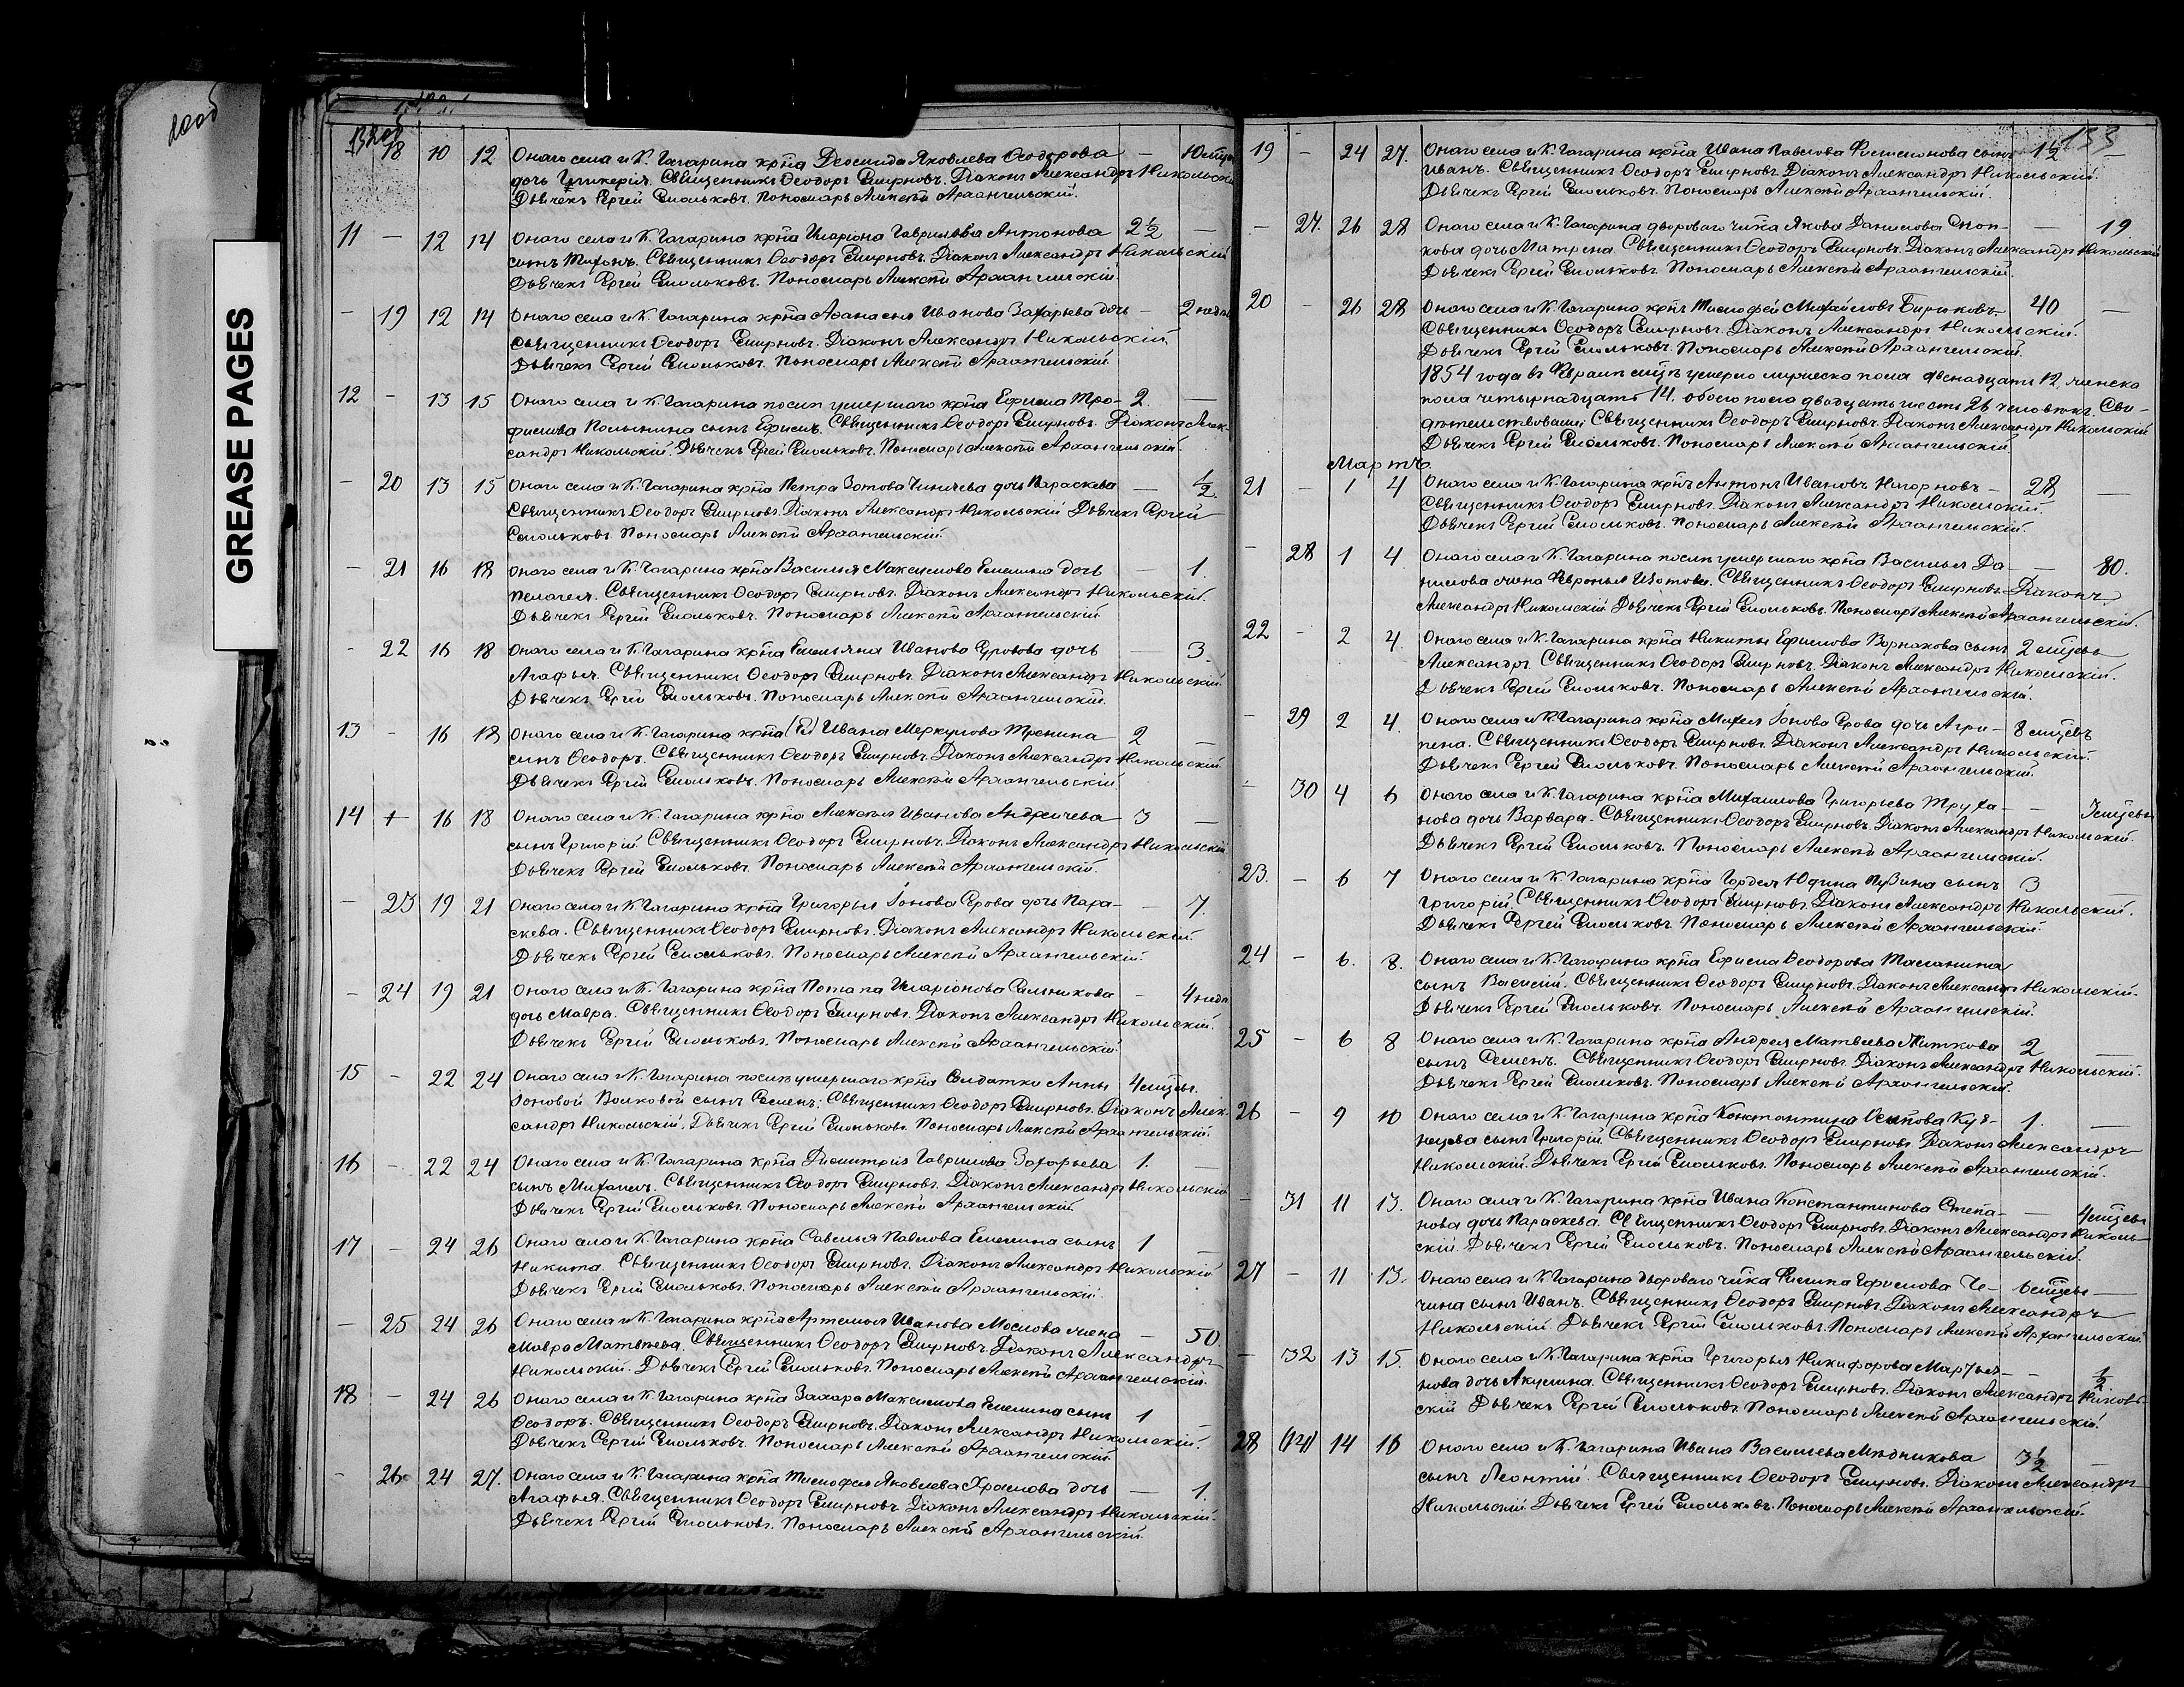 GREASE PAGES
18 10 12 Онаго села и К. Гагарина крѣна Леонида Яковлева Ѳеодорова — 10 мѣсяц
дочь Гликерія. Священникъ Ѳеодоръ Смирновъ. Діаконъ Александръ Никольскій
Дьячекъ Сергѣй Смольковъ. Пономарь Алексѣй Архангельскій.
11 — 12 14 Онаго села и К. Гагарина крѣна Иларіона Гаврилова Антонова 2½ —
сынъ Тихонъ. Священникъ Ѳеодоръ Смирновъ. Діаконъ Александръ Никольскій
Дьячекъ Сергѣй Смольковъ. Пономарь Алексѣй Архангельскій.
— 19 12 14 Онаго села и К. Гагарина крѣна Аѳанасья Иванова Захарьева дочь — 2 недѣл
Священникъ Ѳеодоръ Смирновъ. Діаконъ Александръ Никольскій
Дьячекъ Сергѣй Смольковъ. Пономарь Алексѣй Архангельскій.
12 — 13 15 Онаго села и К. Гагарина послѣ умершаго крѣна Ефима Тро- 2. —
фимова сынъ Ефимъ. Священникъ Ѳеодоръ Смирновъ. Діаконъ Алек-
сандръ Никольскій. Дьячекъ Сергѣй Смольковъ. Пономарь Алексѣй Архангельскій.
— 20 13 15 Онаго села и К. Гагарина крѣна Петра Зотова дочь Параскева — ½
Священникъ Ѳеодоръ Смирновъ. Діаконъ Александръ Никольскій Дьячекъ Сергѣй
Смольковъ. Пономарь Алексѣй Архангельскій.
— 21 16 18 Онаго села и К. Гагарина крѣна Василья Максимова Емелина дочь — 1.
Пелагея. Священникъ Ѳеодоръ Смирновъ. Діаконъ Александръ Никольскій
Дьячекъ Сергѣй Смольковъ. Пономарь Алексѣй Архангельскій
— 22 16 18 Онаго села и К. Гагарина крѣна Емельяна Иванова Суровова дочь — 3
Агафья. Священникъ Ѳеодоръ Смирновъ. Діаконъ Александръ Никольскій.
Дьячекъ Сергѣй Смольковъ. Пономарь Алексѣй Архангельскій.
13 — 16 18 Онаго села и К. Гагарина крѣна Ивана Меркулова Тренина 2 —
сынъ Ѳеодоръ. Священникъ Ѳеодоръ Смирновъ. Діаконъ Александръ Никольскій
Дьячекъ Сергѣй Смольковъ. Пономарь Алексѣй Архангельскій
14 + 16 18 Онаго села и К. Гагарина крѣна Алексѣя Иванова Андреичева 3 —
сынъ Григорій Священникъ Ѳеодоръ Смирновъ. Діаконъ Александръ Никольскій
Дьячекъ Сергѣй Смольковъ. Пономарь Алексѣй Архангельскій.
— 23 19 21 Онаго села и К. Гагарина крѣна Григорья Іонова Ерова дочь Пара- — 7.
скева. Священникъ Ѳеодоръ Смирновъ. Діаконъ Александръ Никольскій.
Дьячекъ Сергѣй Смольковъ. Пономарь Алексѣй Архангельскій.
— 24 19 21 Онаго села и К. Гагарина крѣна Потапа Иларіонова Сальникова — 4 недѣл
дочь Мавра. Священникъ Ѳеодоръ Смирновъ. Діаконъ Александръ Никольскій.
Дьячекъ Сергѣй Смольковъ. Пономарь Алексѣй Архангельскій
15 — 22 24 Онаго села и К. Гагарина послѣ умершаго крѣна Солдатки Анны 4 мѣсяц
Іоновой Волковой сынъ Семенъ. Священникъ Ѳеодоръ Смирновъ. Діаконъ Алек-
сандръ Никольскій. Дьячекъ Сергѣй Смольковъ. Пономарь Алексѣй Архангельскій
16 — 22 24 Онаго села и К. Гагарина крѣна Димитрія Гаврилова Захарьева 1. —
сынъ Михаилъ. Священникъ Ѳеодоръ Смирновъ. Діаконъ Александръ Никольскій
Дьячекъ Сергѣй Смольковъ. Пономарь Алексѣй Архангельскій.
17 — 24 26 Онаго села и К. Гагарина крѣна Савелья Павлова Емелина сынъ 1 —
Никита. Священникъ Ѳеодоръ Смирновъ. Діаконъ Александръ Никольскій
Дьячекъ Сергѣй Смольковъ. Пономарь Алексѣй Архангельскій.
— 25 24 26 Онаго села и К. Гагарина крѣна Артемья Иванова Маслова жена — 50.
Мавра Матвѣева. Священникъ Ѳеодоръ Смирновъ. Діаконъ Александръ
Никольскій. Дьячекъ Сергѣй Смольковъ. Пономарь Алексѣй Архангельскій.
18 — 24 26 Онаго села и К. Гагарина крѣна Захара Максимова Емелина сынъ 1 —
Ѳеодоръ. Священникъ Ѳеодоръ Смирновъ. Діаконъ Александръ Никольскій.
Дьячекъ Сергѣй Смольковъ. Пономарь Алексѣй Архангельскій
— 26 24 27. Онаго села и К. Гагарина крѣна Тимофея Яковлева Храмова дочь — 1.
Агафья. Священникъ Ѳеодоръ Смирновъ. Діаконъ Александръ Никольскій.
Дьячекъ Сергѣй Смольковъ. Пономарь Алексѣй Архангельскій.
133
19 — 24 27. Онаго села и К. Гагарина крѣна Ивана Павлова Филимонова сынъ 1½ —
Иванъ. Священникъ Ѳеодоръ Смирновъ. Діаконъ Александръ Никольскій.
Дьячекъ Сергѣй Смольковъ. Пономарь Алексѣй Архангельскій.
— 27. 26 28 Онаго села и К. Гагарина двороваго чѣка Якова Данилова Скоп- — 19
кова дочь Матрена. Священникъ Ѳеодоръ Смирновъ. Діаконъ Александръ Никольскій
Дьячекъ Сергѣй Смольковъ. Пономарь Алексѣй Архангельскій.
20 — 26 28 Онаго села и К. Гагарина крѣнъ Тимофей Михайловъ Бирюковъ. 40 —
Священникъ Ѳеодоръ Смирновъ. Діаконъ Александръ Никольскій.
Дьячекъ Сергѣй Смольковъ. Пономарь Алексѣй Архангельскій.
1854 года въ Февралѣ мцѣ умерло мужеска пола двенадцать 12, женска
пола четырнадцать 14. обоего пола двадцать шесть 26 человѣкъ. Сви-
дѣтельствовали: Священникъ Ѳеодоръ Смирновъ. Діаконъ Александръ Никольскій
Дьячекъ Сергѣй Смольковъ. Пономарь Алексѣй Архангельскій.
Мартъ.
21 — 1 4 Онаго села и К. Гагарина крѣнъ Антонъ Ивановъ Нагорновъ — 28 —
Священникъ Ѳеодоръ Смирновъ. Діаконъ Александръ Никольскій.
Дьячекъ Сергѣй Смольковъ. Пономарь Алексѣй Архангельскій.
— 28 1 4. Онаго села и К. Гагарина послѣ умершаго крѣна Василья Да- — 80.
нилова жена Февронья Изотова. Священникъ Ѳеодоръ Смирновъ. Діаконъ
Александръ Никольскій Дьячекъ Сергѣй Смольковъ. Пономарь Алексѣй Архангельскій.
22 — 2 4. Онаго села и К. Гагарина крѣна Никиты Ефимова Варнакова сынъ 2 мѣсяцы
Александръ. Священникъ Ѳеодоръ Смирновъ. Діаконъ Александръ Никольскій.
Дьячекъ Сергѣй Смольковъ. Пономарь Алексѣй Архангельскій.
— 29 2 4. Онаго села и К. Гагарина крѣна Михея Іонова Ерова дочь Агри- 8 мѣсяцевъ
пена. Священникъ Ѳеодоръ Смирновъ. Діаконъ Александръ Никольскій.
Дьячекъ Сергѣй Смольковъ. Пономарь Алексѣй Архангельскій.
— 30 4 6 Онаго села и К. Гагарина крѣна Михаилова Григорьева Труха- — 3 мѣсяцы
нова дочь Варвара. Священникъ Ѳеодоръ Смирновъ. Діаконъ Александръ Никольскій.
Дьячекъ Сергѣй Смольковъ. Пономарь Алексѣй Архангельскій.
23. — 6 7 Онаго села и К. Гагарина крѣна Гордея Юдина Пузина сынъ 3 —
Григорій. Священникъ Ѳеодоръ Смирновъ. Діаконъ Александръ Никольскій.
Дьячекъ Сергѣй Смольковъ. Пономарь Алексѣй Архангельскій.
24 — 6. 8. Онаго села и К. Гагарина крѣна Ефима Ѳеодорова Масланина
сынъ Василій. Священникъ Ѳеодоръ Смирновъ. Діаконъ Александръ Никольскій.
Дьячекъ Сергѣй Смольковъ. Пономарь Алексѣй Архангельскій.
25 — 6 8 Онаго села и К. Гагарина крѣна Андрея Матвѣева Титкова 2 —
сынъ Семенъ. Священникъ Ѳеодоръ Смирновъ. Діаконъ Александръ Никольскій.
Дьячекъ Сергѣй Смольковъ. Пономарь Алексѣй Архангельскій.
26 — 9 10 Онаго села и К. Гагарина крѣна Константина Осипова Куз- 1. —
нецова сынъ Григорій. Священникъ Ѳеодоръ Смирновъ. Діаконъ Александръ
Никольскій. Дьячекъ Сергѣй Смольковъ. Пономарь Алексѣй Архангельскій.
— 31 11 13. Онаго села и К. Гагарина крѣна Ивана Константинова Степа- — 4 мѣсяцы
нова дочь Параскева. Священникъ Ѳеодоръ Смирновъ. Діаконъ Александръ Николь-
скій. Дьячекъ Сергѣй Смольковъ. Пономарь Алексѣй Архангельскій.
27 — 11 13. Онаго села и К. Гагарина двороваго чѣка Филипа Ефимова Че- 6 мѣсяцы —
чина сынъ Иванъ. Священникъ Ѳеодоръ Смирновъ. Діаконъ Александръ
Никольскій. Дьячекъ Сергѣй Смольковъ. Пономарь Алексѣй Архангельскій
— 32 13 15. Онаго села и К. Гагарина крѣна Григорья Никифорова Мартья- — ½
нова дочь Акулина. Священникъ Ѳеодоръ Смирновъ. Діаконъ Александръ Николь-
скій Дьячекъ Сергѣй Смольковъ. Пономарь Алексѣй Архангельскій.
28 (14) 14 16 Онаго села и К. Гагарина Ивана Васильева Мѣдникова 3½ —
сынъ Леонтій. Священникъ Ѳеодоръ Смирновъ. Діаконъ Александръ
Никольскій. Дьячекъ Сергѣй Смольковъ. Пономарь Алексѣй Архангельскій.